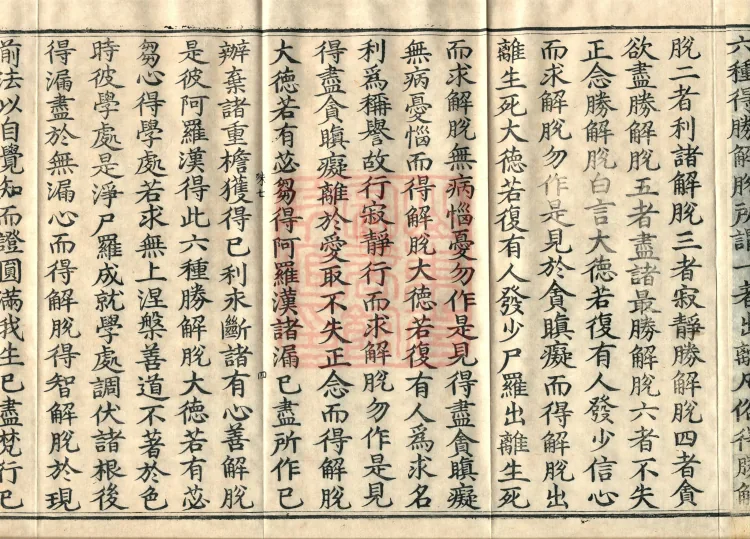 六種得勝解脫所謂一者出離
脫二者利諸解脫三者寂靜勝解脫四者貪
欲盡勝解脫五者盡諸最勝解脫六者不失
正念勝解脫白言大德若復有人發少信心
而求解脫勿作是見於貪瞋癡而得解脫出
離生死大德若復有人發少尸羅出離生死
而求解脫無病惱憂勿作是見得盡貪瞋癡
無病憂惱而得解脫大德若復有人爲求名
利爲稱譽故行寂靜行而求解脫勿作是見
得盡貪瞋癡離於愛取不失正念而得解脫
大德若有苾芻得阿羅漢諸漏已盡所作已
四
辦棄諸重擔獲得已利永斷諸有心善解脫
是彼阿羅漢得此六種勝解脫大德若有苾
芻心得學處若求無上涅槃善道不著於色
時彼學處是淨尸羅成就學處調伏諸根後
得漏盡於無漏心而得解脫得智解脫於現
前法以自覺知而證圓滿我生已盡梵行已